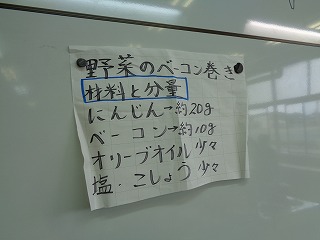 野菜のベーコン巻き
材料と分量
にんじん→約20g
ベーコン→約10g
オリーブオイル少々
塩・こしょう少々